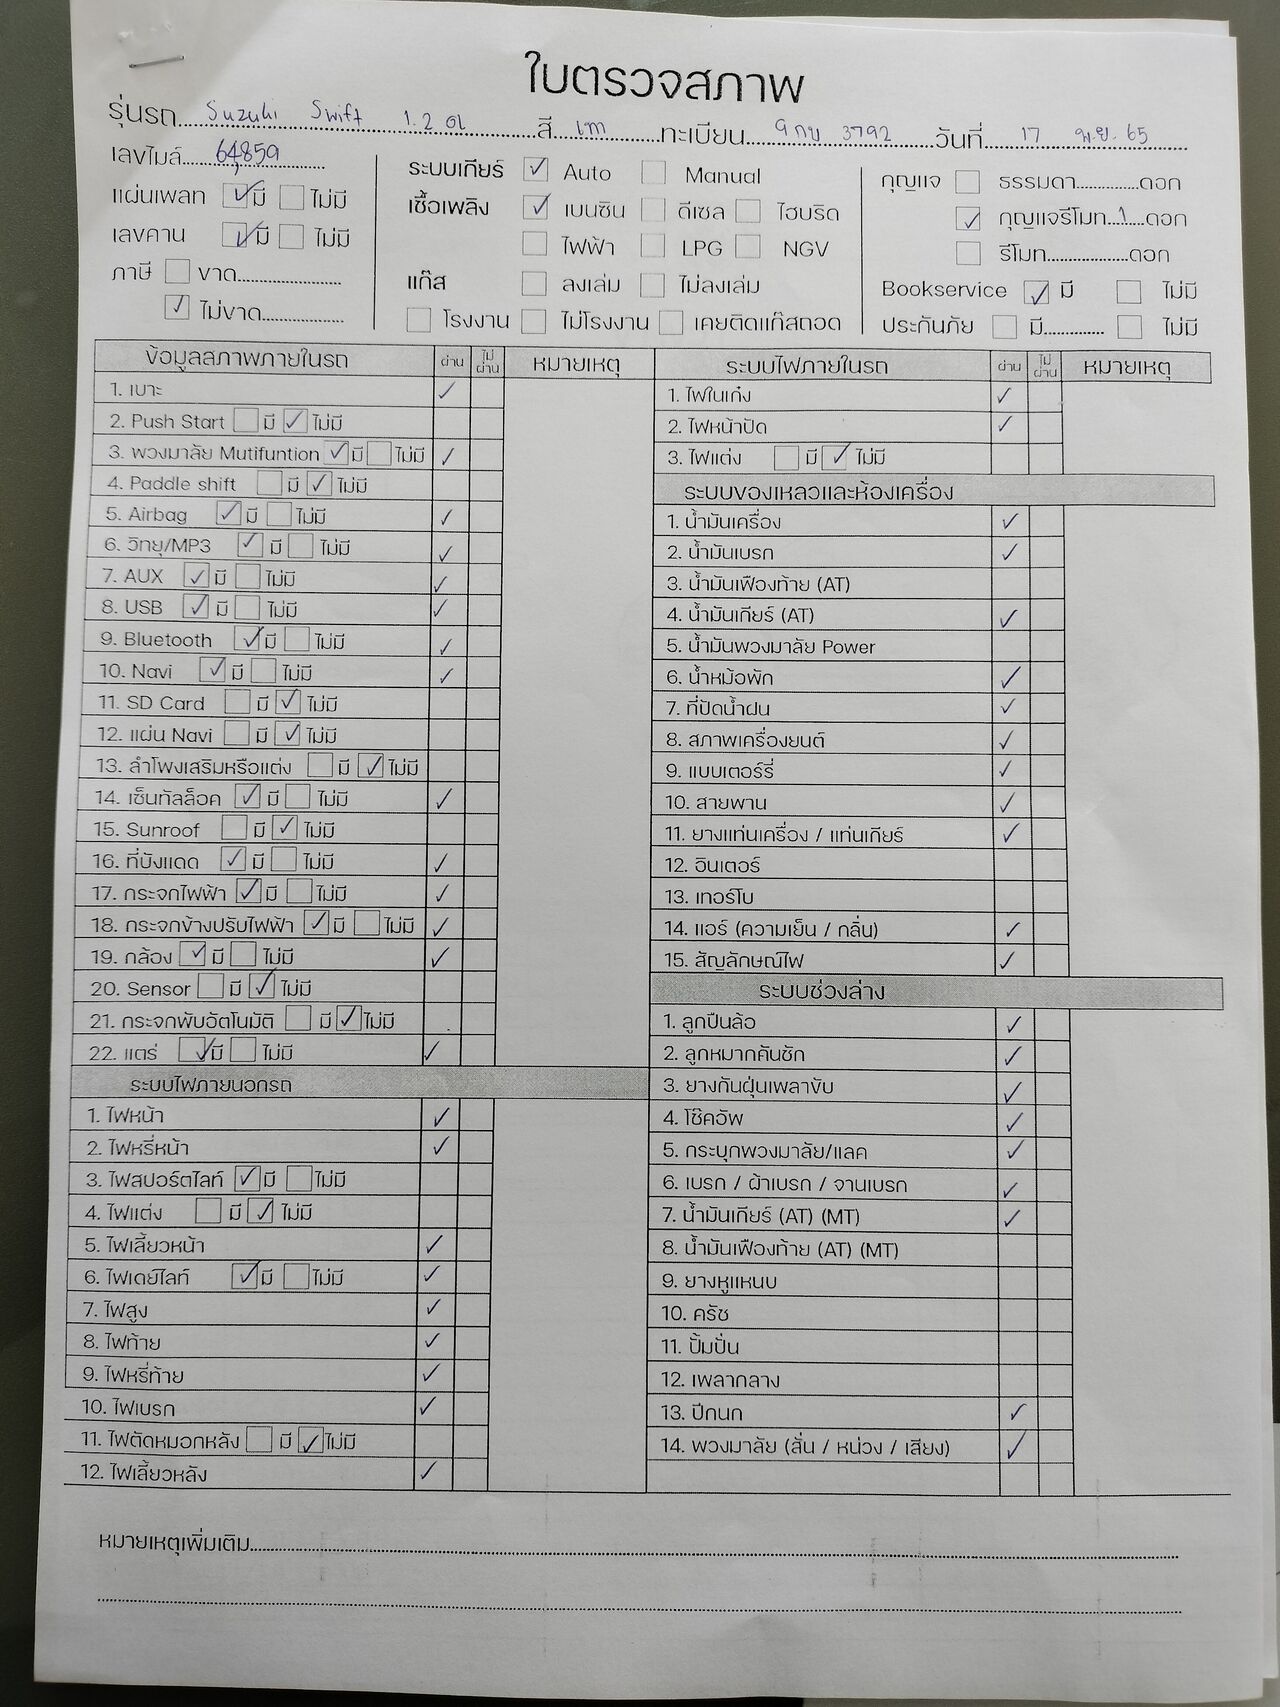 ใบตรวจสภาพ
รุ่นรถ Suzuki Swift 1.2 GL สี เทา ทะเบียน 9กบ 3792 วันที่ 17 พ.ย. 65
เลขไมล์ 64,859
แผ่นเพลท ☑ มี ☐ ไม่มี
เลขคาน ☑ มี ☐ ไม่มี
ภาษี ☐ ขาด
☑ ไม่ขาด
ระบบเกียร์ ☑ Auto ☐ Manual
เชื้อเพลิง ☑ เบนซิน ☐ ดีเซล ☐ ไฮบริด
☐ ไฟฟ้า ☐ LPG ☐ NGV
แก๊ส ☐ ลงเล่ม ☐ ไม่ลงเล่ม
☐ โรงงาน ☐ ไม่โรงงาน ☐ เคยติดแก๊สถอด
กุญแจ ☐ ธรรมดา ดอก
☑ กุญแจรีโมท 1 ดอก
☐ รีโมท ดอก
Bookservice ☑ มี ☐ ไม่มี
ประกันภัย ☐ มี ☐ ไม่มี
ข้อมูลสภาพภายในรถ ผ่าน ไม่ผ่าน หมายเหตุ
1. เบาะ ✓
2. Push Start ☐ มี ☑ ไม่มี
3. พวงมาลัย Mutifuntion ☑ มี ☐ ไม่มี ✓
4. Paddle shift ☐ มี ☑ ไม่มี
5. Airbag ☑ มี ☐ ไม่มี ✓
6. วิทยุ/MP3 ☑ มี ☐ ไม่มี ✓
7. AUX ☑ มี ☐ ไม่มี ✓
8. USB ☑ มี ☐ ไม่มี ✓
9. Bluetooth ☑ มี ☐ ไม่มี ✓
10. Navi ☑ มี ☐ ไม่มี ✓
11. SD Card ☐ มี ☑ ไม่มี
12. แผ่น Navi ☐ มี ☑ ไม่มี
13. ลำโพงเสริมหรือแต่ง ☐ มี ☑ ไม่มี
14. เซ็นทัลล็อค ☑ มี ☐ ไม่มี ✓
15. Sunroof ☐ มี ☑ ไม่มี
16. ที่บังแดด ☑ มี ☐ ไม่มี ✓
17. กระจกไฟฟ้า ☑ มี ☐ ไม่มี ✓
18. กระจกข้างปรับไฟฟ้า ☑ มี ☐ ไม่มี ✓
19. กล้อง ☑ มี ☐ ไม่มี ✓
20. Sensor ☐ มี ☑ ไม่มี
21. กระจกพับอัตโนมัติ ☐ มี ☑ ไม่มี
22. แตร่ ☑ มี ☐ ไม่มี ✓
ระบบไฟภายนอกรถ
1. ไฟหน้า ✓
2. ไฟหรี่หน้า ✓
3. ไฟสปอร์ตไลท์ ☑ มี ☐ ไม่มี
4. ไฟแต่ง ☐ มี ☑ ไม่มี
5. ไฟเลี้ยวหน้า ✓
6. ไฟเดย์ไลท์ ☑ มี ☐ ไม่มี ✓
7. ไฟสูง ✓
8. ไฟท้าย ✓
9. ไฟหรี่ท้าย ✓
10. ไฟเบรก ✓
11. ไฟตัดหมอกหลัง ☐ มี ☑ ไม่มี
12. ไฟเลี้ยวหลัง ✓
ระบบไฟภายในรถ ผ่าน ไม่ผ่าน หมายเหตุ
1. ไฟในเก๋ง ✓
2. ไฟหน้าปัด ✓
3. ไฟแต่ง ☐ มี ☑ ไม่มี
ระบบของเหลวและห้องเครื่อง
1. น้ำมันเครื่อง ✓
2. น้ำมันเบรก ✓
3. น้ำมันเฟืองท้าย (AT)
4. น้ำมันเกียร์ (AT) ✓
5. น้ำมันพวงมาลัย Power
6. น้ำหม้อพัก ✓
7. ที่ปัดน้ำฝน ✓
8. สภาพเครื่องยนต์ ✓
9. แบบเตอร์รี่ ✓
10. สายพาน ✓
11. ยางแท่นเครื่อง / แท่นเกียร์ ✓
12. อินเตอร์
13. เทอร์โบ
14. แอร์ (ความเย็น / กลิ่น) ✓
15. สัญลักษณ์ไฟ ✓
ระบบช่วงล่าง
1. ลูกปืนล้อ ✓
2. ลูกหมากคันชัก ✓
3. ยางกันฝุ่นเพลาขับ ✓
4. โช๊คอัพ ✓
5. กระบุกพวงมาลัย/แลค ✓
6. เบรก / ผ้าเบรก / จานเบรก ✓
7. น้ำมันเกียร์ (AT) (MT) ✓
8. น้ำมันเฟืองท้าย (AT) (MT)
9. ยางหูแหนบ
10. ครัช
11. ปั้มปั่น
12. เพลากลาง
13. ปีกนก ✓
14. พวงมาลัย (สั่น / หน่วง / เสียง) ✓
หมายเหตุเพิ่มเติม